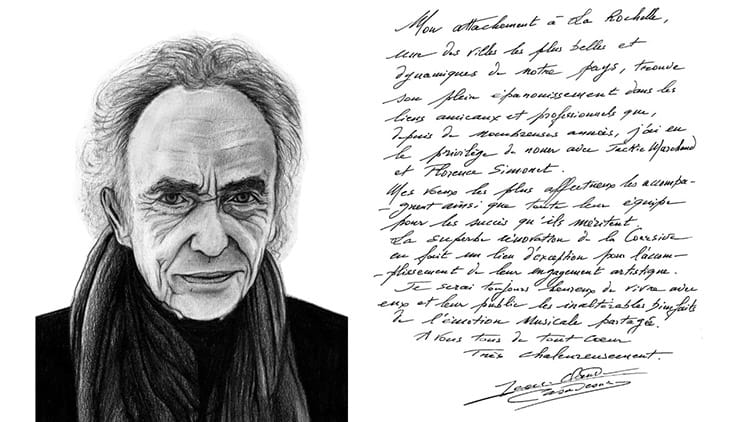 Mon attachement à La Rochelle,
une des villes les plus belles et
dynamiques de notre pays, trouve
son plein épanouissement dans les
liens amicaux et professionnels que,
depuis de nombreuses années, j'ai eu
le privilège de nouer avec Jackie Marchand
et Florence Simonet.
Mes vœux les plus affectueux les accompa-
-gnent ainsi que toute leur équipe
pour les succès qu'ils méritent.
La superbe rénovation de la Coursive
en fait un lieu d'exception pour l'accom-
-plissement de leur engagement artistique.
Je serai toujours heureux de vivre avec
eux et leur public les inaltérables bienfaits
de l'émotion Musicale partagée.
A Vous tous de tout cœur
Très chaleureusement.
Jean-Claude
Casadesus